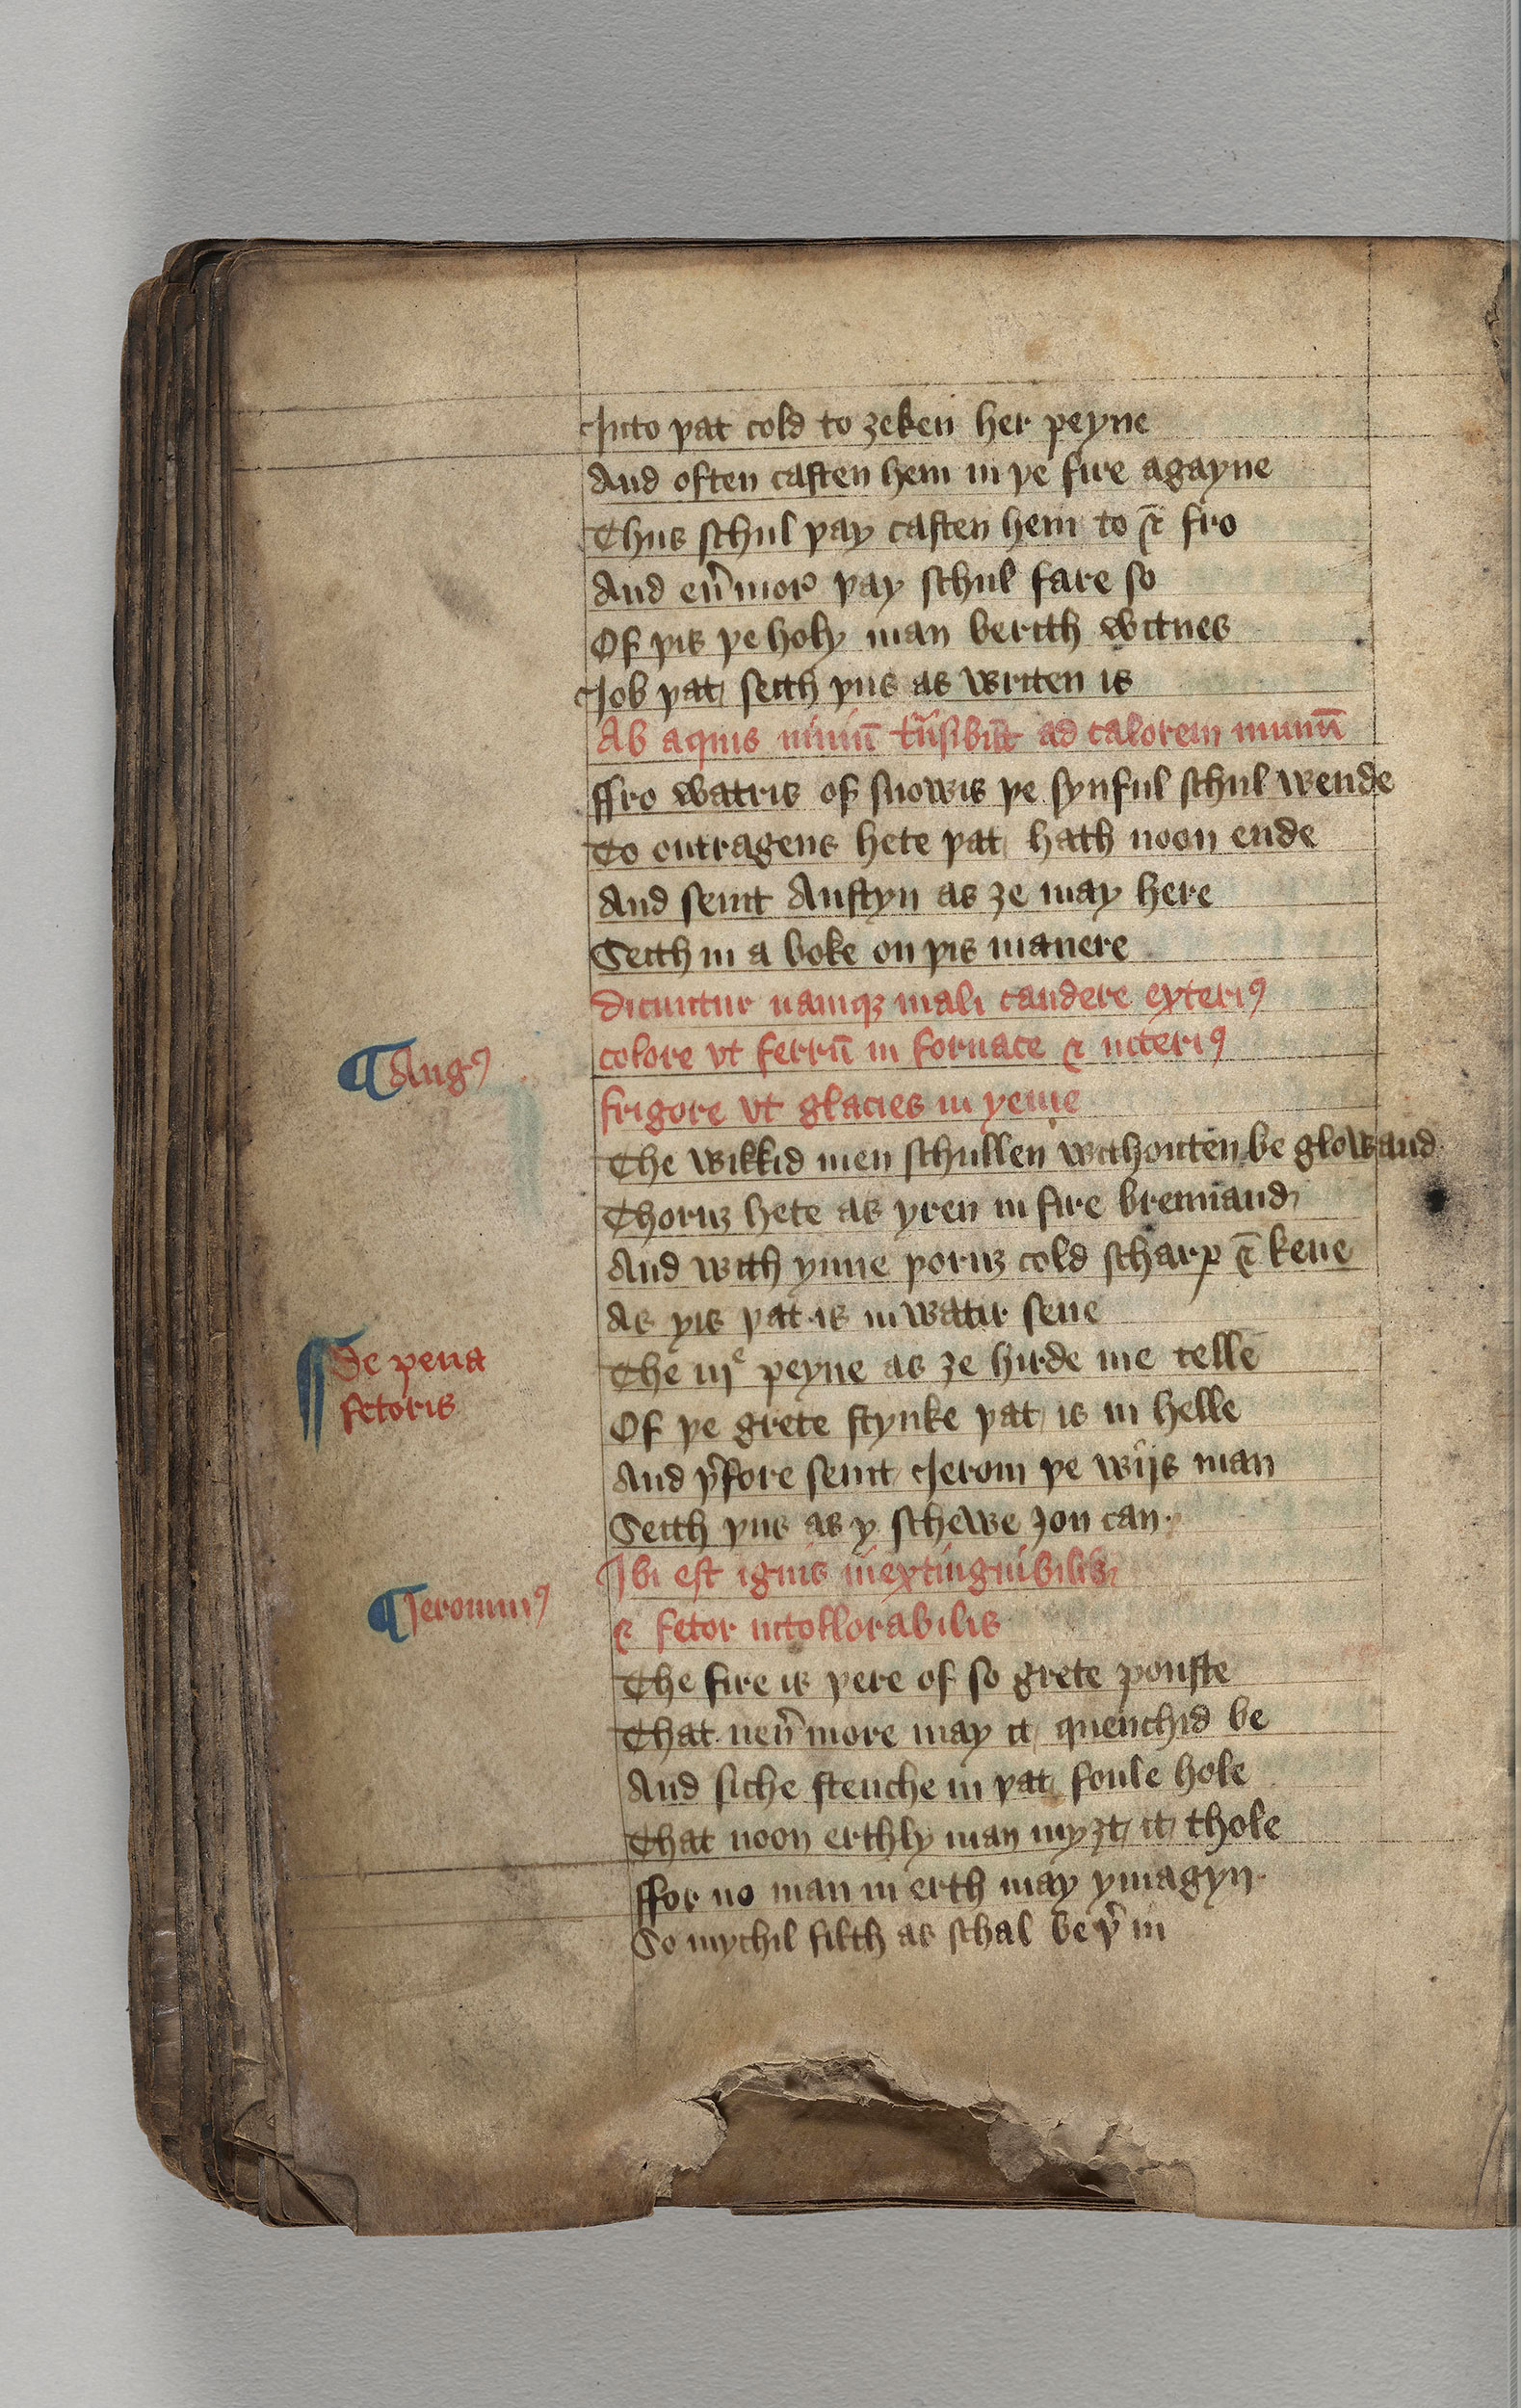 Into þat cold to ȝeken her peyne
And often casten hem in þe fire agayne
Thus schul þay casten hem to & fro
And eu̾mor̾ þay schul fare so
Of þis þe holy man berith witnes
Job þat seith þus as writen is
Ab aquis niuiū tͣnsibūt ad calorem nimiū
ffro watris of snowis þe synful schul wende
To outrageus hete þat hath noon ende
And seint Austyn as ȝe may here
Seith in a boke on þis manere
Dicuntur namqꝫ mali candere exteriꝰ
¶ Augꝰ
colore vt ferrū in fornace & interiꝰ
frigore vt glacies in yeme
The wikkid men schullen withouten be glowand
Thoruȝ hete as yren in fire brennand
And with ynne þoruȝ cold scharp & kene
As yis þat is in watir sene
The iijᵉ peyne as ȝe hirde me telle
¶ De pena
fetoris
Of þe grete stynke þat is in helle
And þ̾fore seint Jerom þe wijs man
Seith þus as y schewe ȝou can
Ibi est ignis inextinguibilis
¶ Jeronimꝰ
& fetor intollorabilis
The fire is þere of so grete pouste
That neu̾more may it quenchid be
And siche stenche in þat foule hole
That noon erthly man myȝt it thole
ffor no man in erth may ymagyn
So mychil filth as schal be þ̾ in